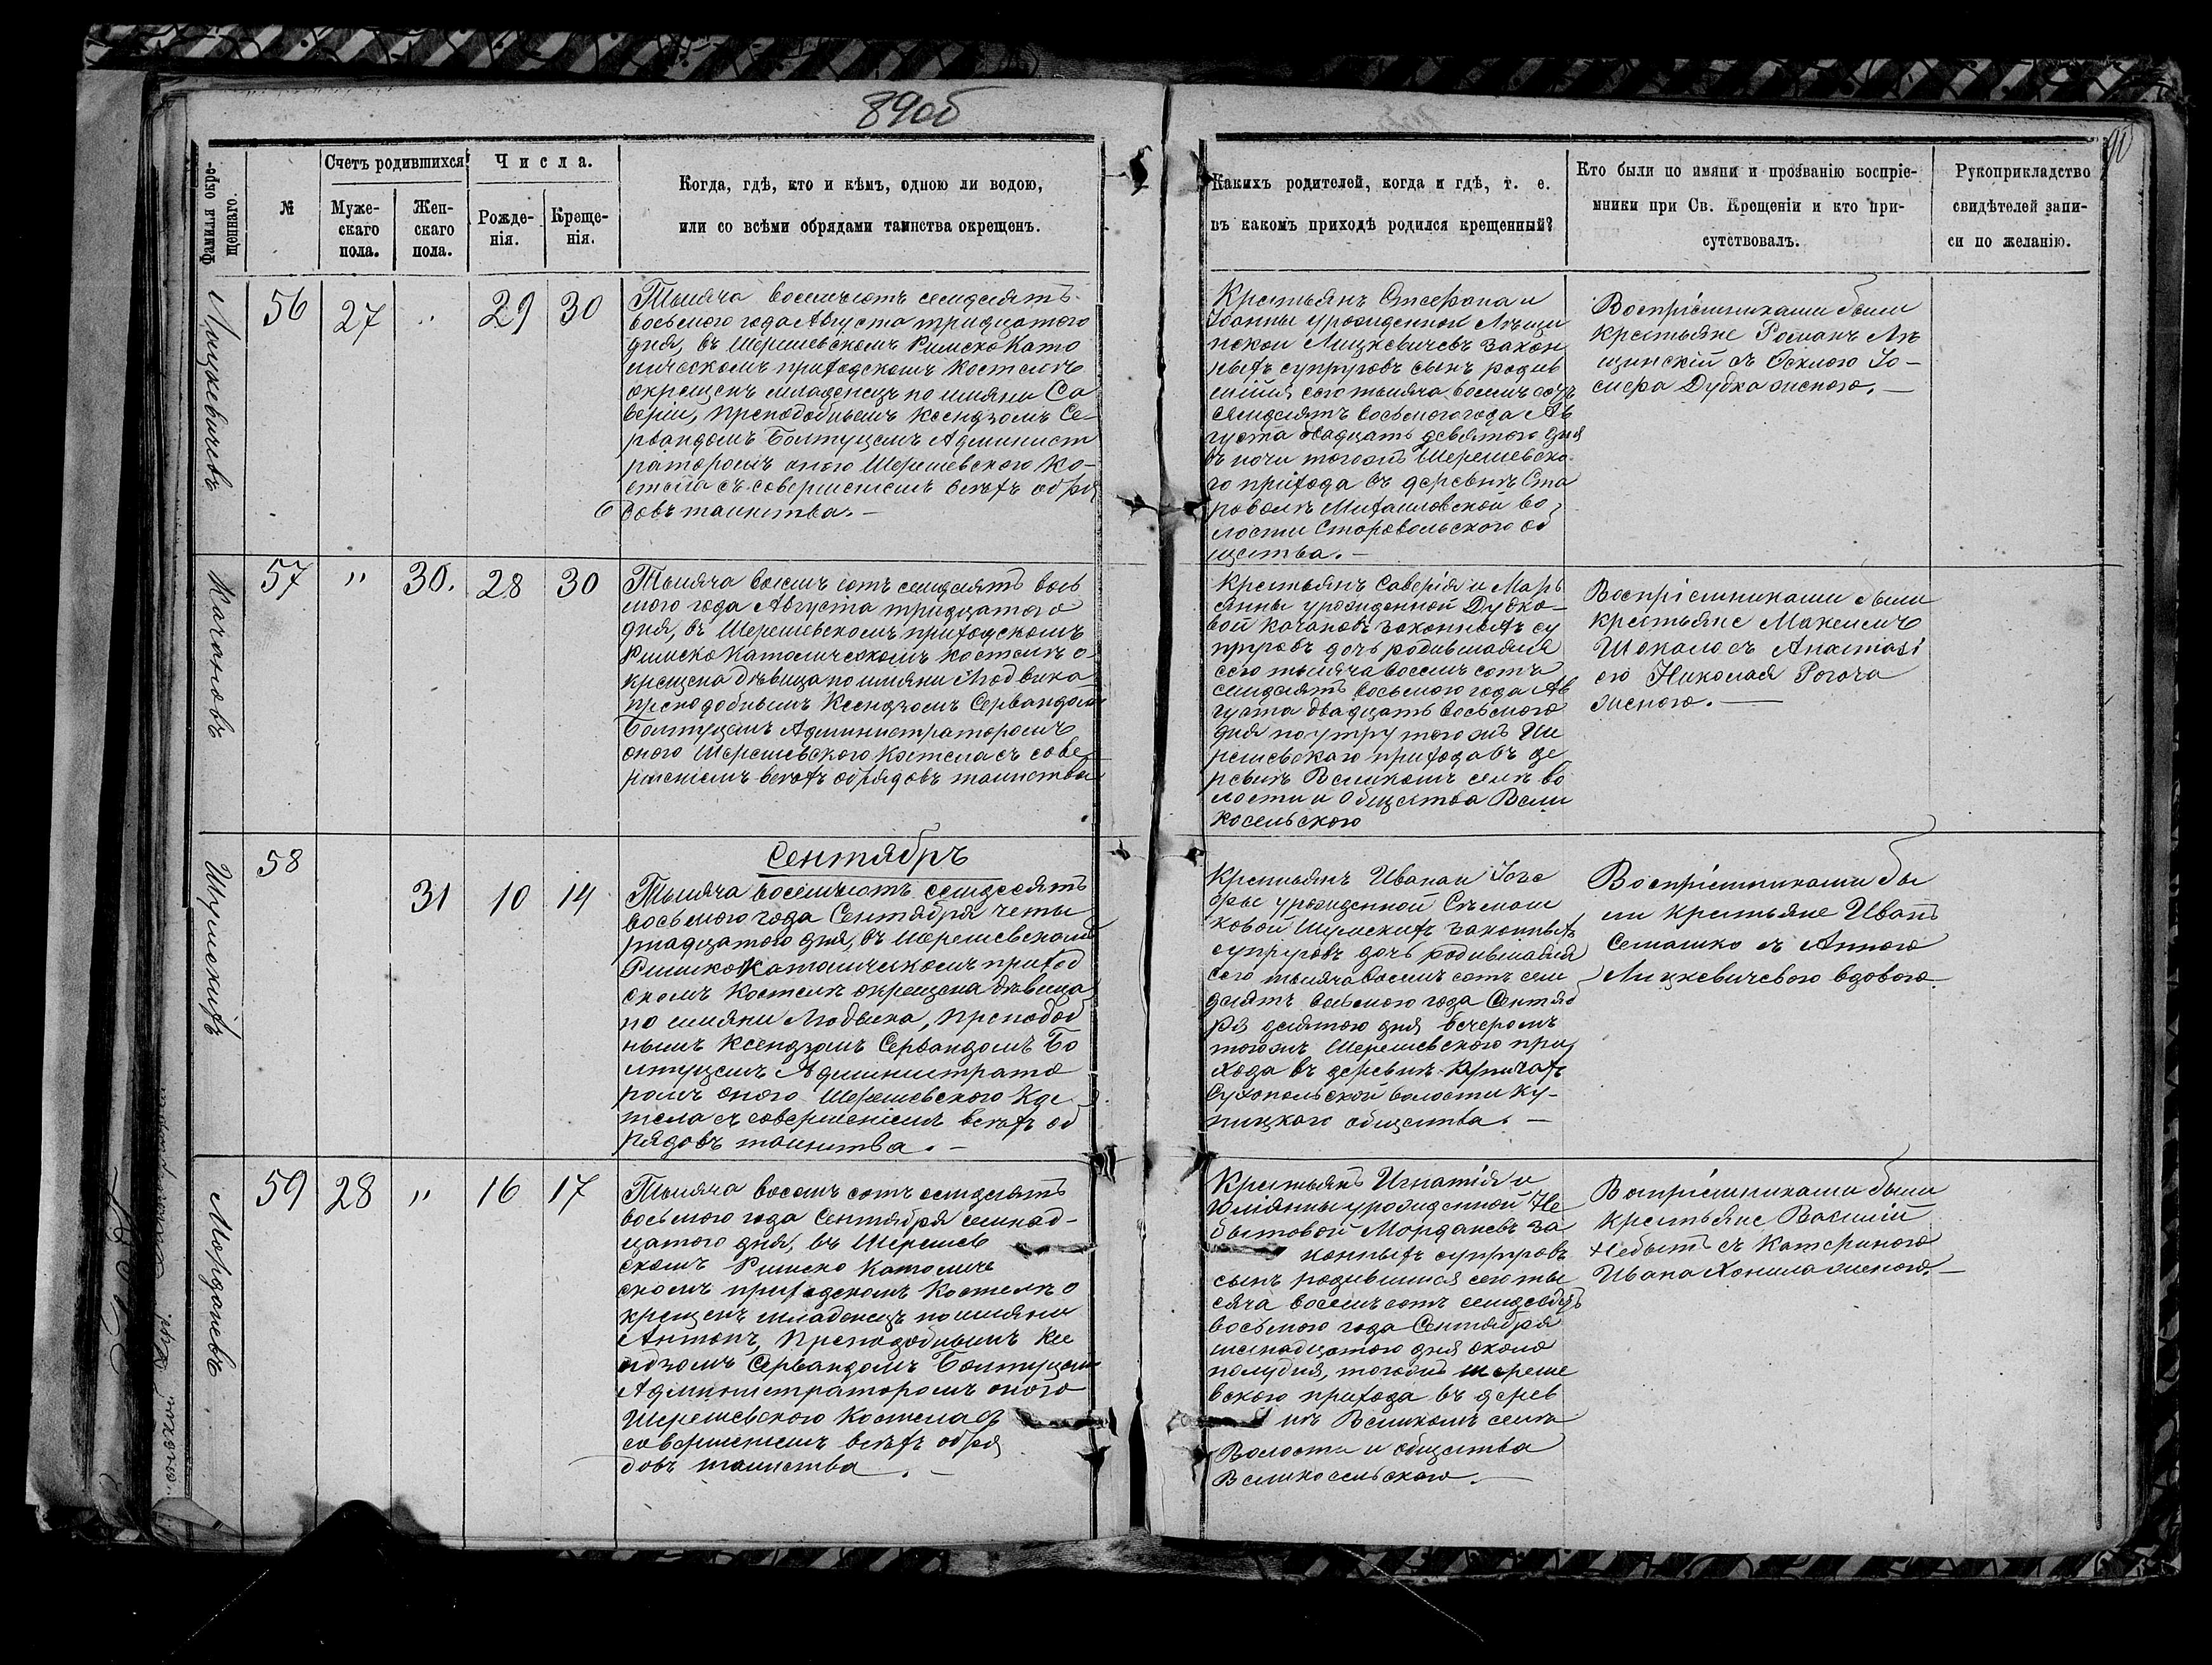 89об
90
Фамилія окре-
щеннаго.
№
Счетъ родившихся
Муже-
скаго
пола.
Жен-
скаго
пола.
Числа.
Рожде-
нія.
Креще-
нія.
Когда, гдѣ, кто и кѣмъ, одною ли водою,
или со всѣми обрядами таинства окрещенъ.
Какихъ родителей, когда и гдѣ, т. е.
въ какомъ приходѣ родился крещенный?
Кто были по имяни и прозванію воспріе-
мники при Св. Крещеніи и кто при-
сутствовалъ.
Рукоприкладство
свидѣтелей запи-
си по желанію.
Лицкевичевъ
56
27
"
29
30
Тысяча восемьсотъ семдесятъ
восьмого года Августа тридцатого
дня, въ Шерешевскомъ Римско Като
лическомъ приходскомъ Костелѣ
окрещенъ младенецъ по имяни Са
верій, преподобнымъ Ксендзомъ Се-
рвандомъ Болтуцемъ Админист
раторомъ оного Шерешевского Ко-
стела съ совершеніемъ всѣхъ обря
довъ таинства.-
Крестьянъ Стефана и
Іоанны урожденной Лѣщи
нской Лицкевичевъ закон
ныхъ супруговъ сынъ родив
шійся сего тысяча восемь сотъ
семдесятъ восьмого года Ав
густа двадцать девятого дня
въ ночи тогожъ Шерешевско
го прихода въ деревнѣ Ста
роволѣ Михайловской во
лости Старовольского об
щества.-
Воспріемниками были
крестьяне Романъ Лѣ
щинскій съ Феклою Іо-
сифа Дубка женою.-
Качановъ
57
"
30.
28
30
Тысяча восемь сотъ семдесятъ вось
мого года Августа тридцатого
дня, въ Шерешевскомъ приходскомъ
Римско Католическомъ Костелѣ о-
крещена дѣвица по имяни Людвика
преподобнымъ Ксендзомъ Сервандомъ
Болтуцемъ Администраторомъ
оного Шерешевского Костела съ сове
ршеніемъ всѣхъ обрядовъ таинства
Крестьянъ Саверія и Марь
янны урожденной Дубко-
вой Качановъ законныхъ су
пруговъ дочь родившаяся
сего тысяча восемь сотъ
семдесятъ восьмого года Ав
густа двадцать восьмого
дня по утру тогожъ Ше
решевскаго прихода въ де
ревнѣ Великомъ селѣ во
лости и общества Вели
косельского
Воспріемниками были
крестьяне Максимъ
Шокало съ Анастасі
ею Николая Рогача
женою.-
Шумскихъ
58
31
10
14
Сентябрь
Тысяча восемьсотъ семдесятъ
восьмого года Сентября четы
рнадцатого дня, въ Шерешевскомъ
Римско Католическомъ приход
скомъ Костелѣ окрещена дѣвица
по имяни Людвика, преподоб
нымъ Ксендзомъ Сервандомъ Бо
лтуцемъ Администрато
ромъ оного Шерешевского Кос
тела съ совершеніемъ всѣхъ об
рядовъ таинства.-
Крестьянъ Ивана и Іозе
фы урожденной Сѣмаш
ковой Шумскихъ законныхъ
супруговъ дочь родившаяся
сего тысяча восемь сотъ сем
десятъ восьмого года Сентяб
ря десятого дня вечеромъ
тогожъ Шерешевского при
хода въ деревнѣ Купичахъ
Сухопольской волости Ку-
пицкаго общества.-
Воспріемниками бы
ли крестьяне Иванъ
Семашко съ Анною
Лицкевичевою вдовою.
Морданевъ
59
28
"
16
17
Тысяча восемь сотъ семдесятъ
восьмого года Сентября семнад-
цатого дня, въ Шерешев
скомъ Римско Католиче
скомъ приходскомъ Костелѣ о
крещенъ младенецъ по имяни
Антонъ, Преподобнымъ Ксе
ндзомъ Сервандомъ Болтуцемъ
Администраторомъ оного
Шерешевского Костела съ
совершеніемъ всѣхъ обря
довъ таинства.-
Крестьянъ Игнатія и
Юліянны урожденной Не
бытовой Морданевъ за
конныхъ супруговъ
сынъ родившійся сего ты
сяча восемь сотъ семдесятъ
восьмого года Сентября
шестнадцатого дня около
полудня, тогожъ Шереше
вского прихода въ дерев
нѣ Великомъ селѣ
Волости и общества
Великосельского.-
Воспріемниками были
крестьяне Василій
Небытъ съ Катериною
Ивана женою.-